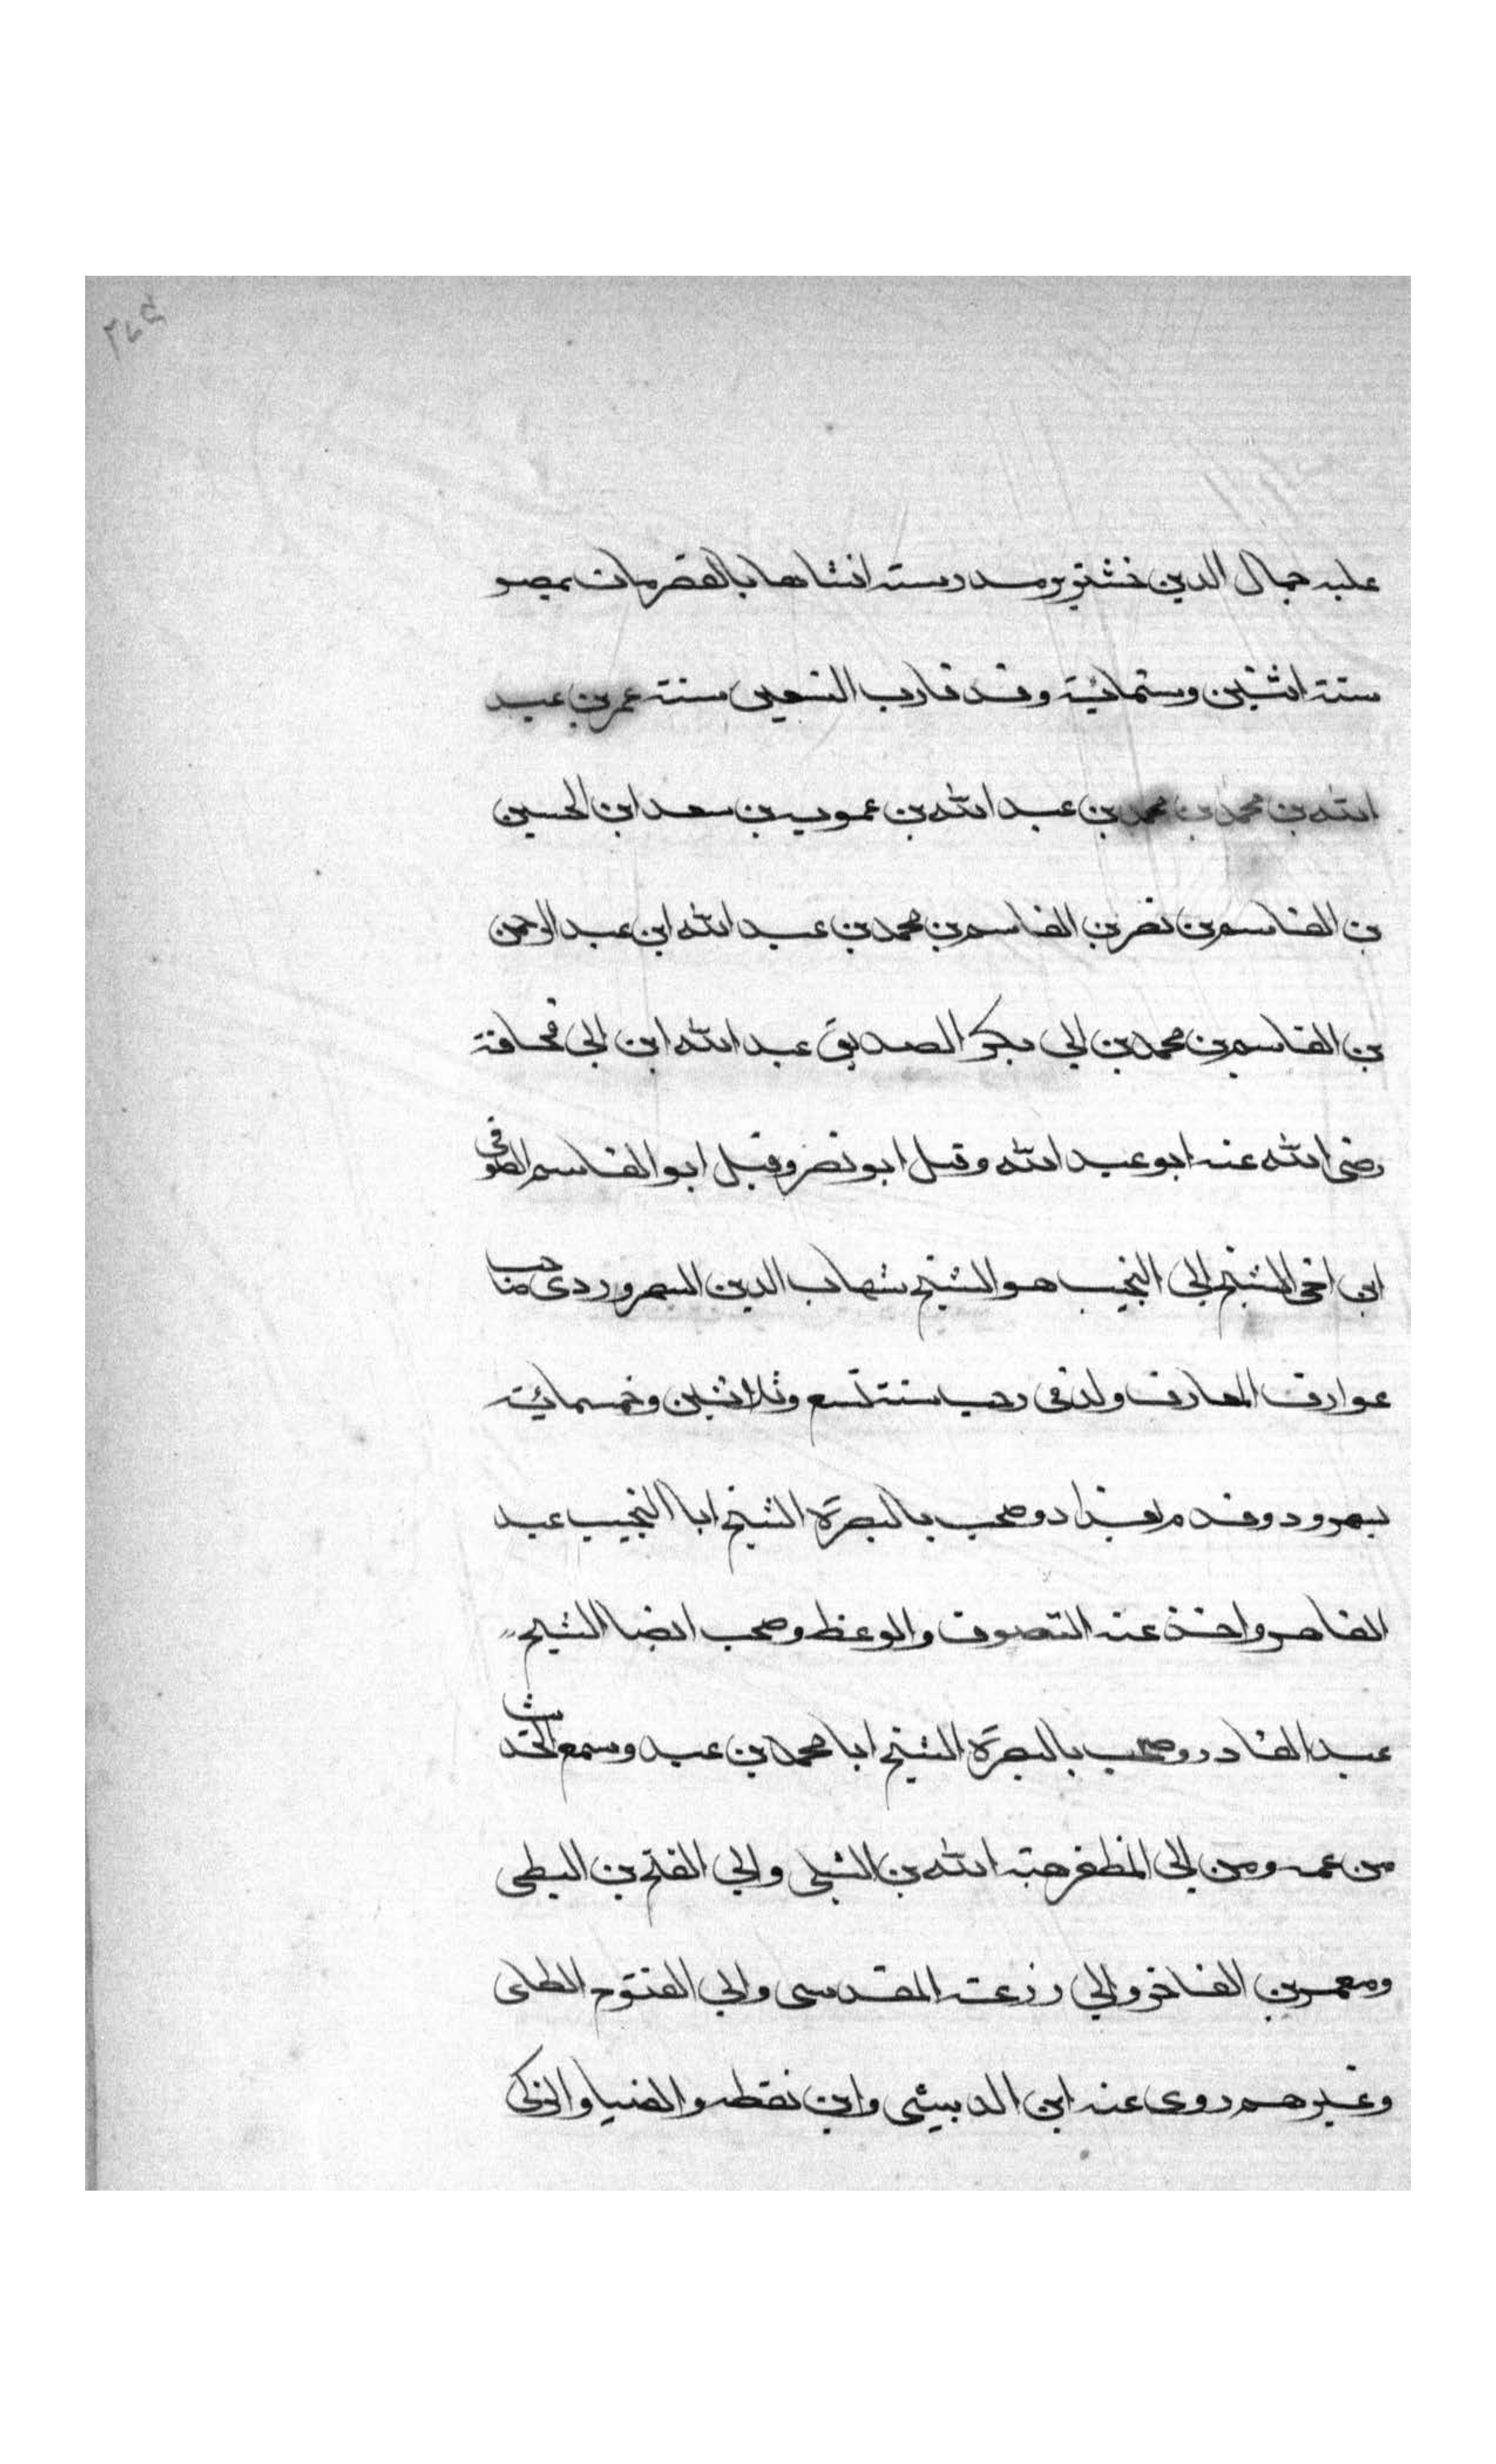 ٢٦٩
عليه جمال الدين خشترين مدرسته انشاها بالقصر مات بمصر
سنة اثنين وستمائة وقد قارب التسعين سنة عمر بن عبد
الله بن محمد بن محمد بن عبد الله بن عمويه بن سعد ابن الحسين
بن القاسم بن نصر بن القاسم بن محمد بن عبد الله ابن عبد الرحمن
بن القاسم بن محمد بن ابي بكر الصديق عبد الله ابن ابي قحافة
رضى الله عنه ابو عبد الله وقيل ابو نصر وقيل ابو القاسم الصوفى
ابن اخى الشيخ ابي النجيب هو الشيخ شهاب الدين السهروردى صاحب
عوارف المعارف ولد فى رجب سنة تسع وثلاثين وخمسمائة
بسهرورد وقدم بغداد وصحب بالبصرة الشيخ ابا النجيب عبد
القاهر واخذ عنه التصوف والوعظ وصحب ايضا الشيخ
عبد القادر وصحب بالبصرة الشيخ ابا محمد بن عبد وسمع الحديث
من عمه ومن ابي المظفر هبة الله بن الشبلى وابي الفتح بن البطى
ومعمر بن الفاخر وابي زرعة المقدسى وابي الفتوح الطاى
وغيرهم روى عنه ابن الدبيثى وابن نقطه والضيا والزكى